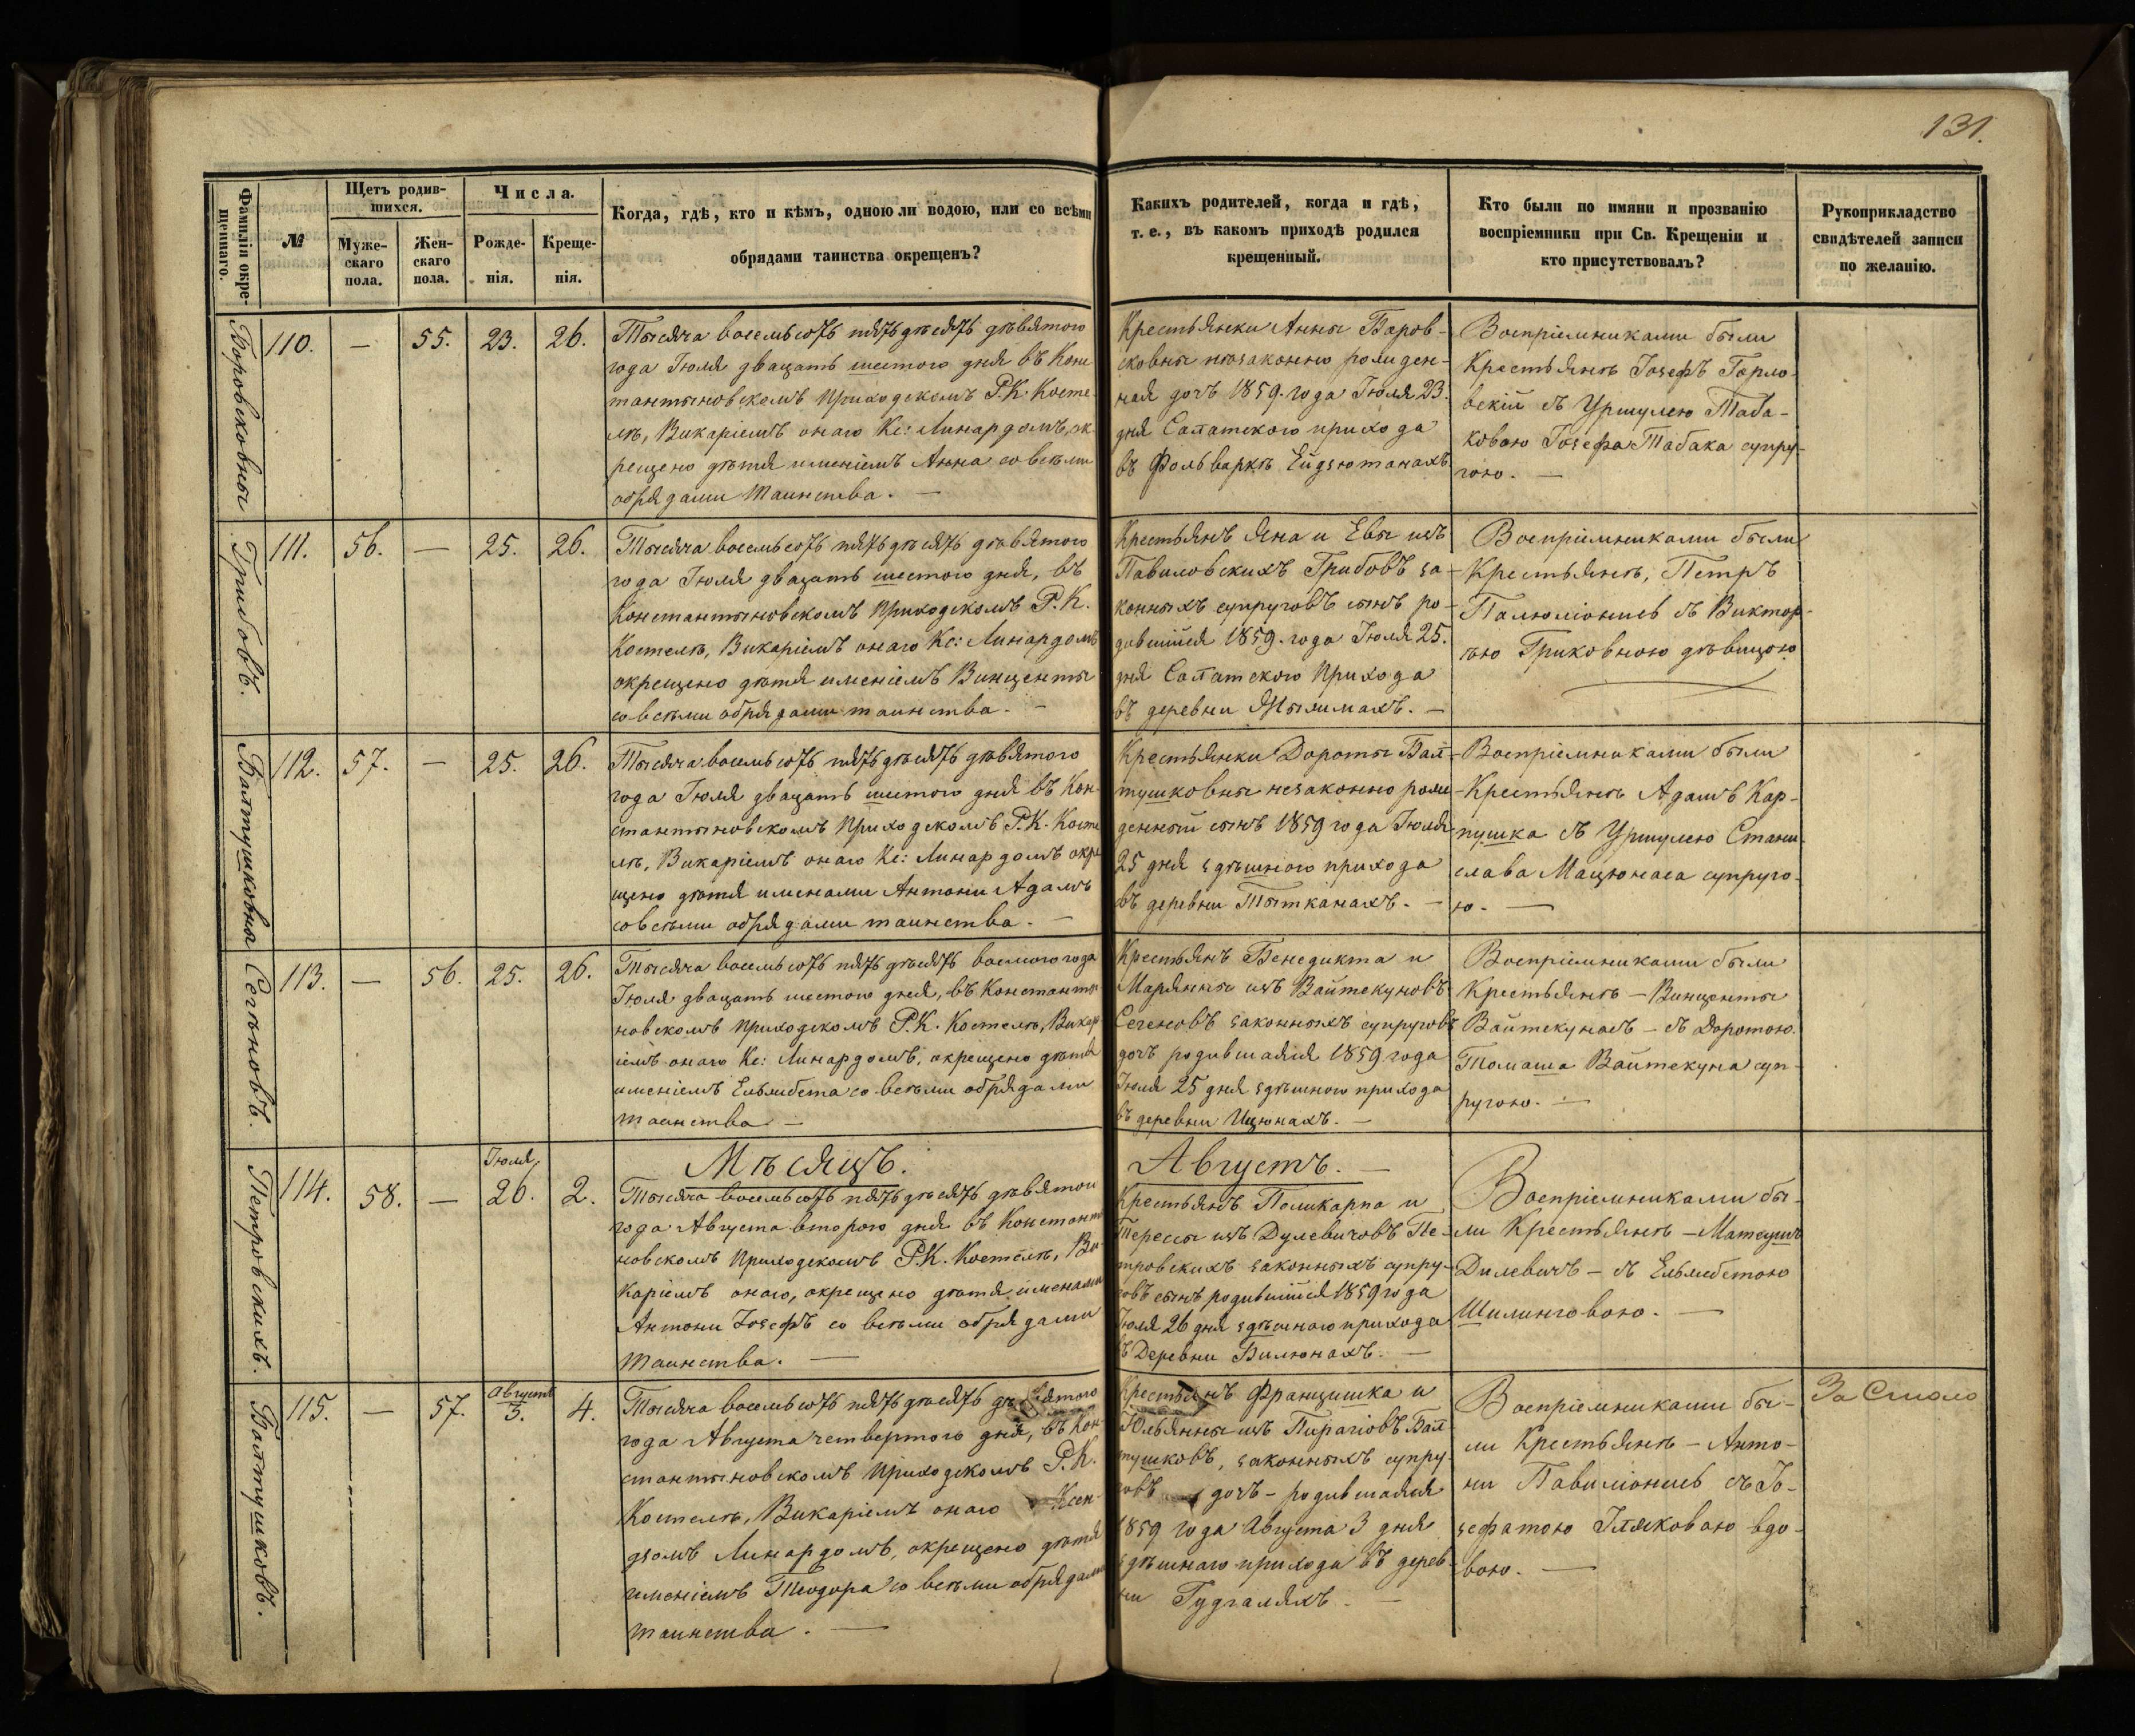 131.
Фамиліи окре-
щеннаго.
№
Щетъ родив-
шихся.
Муже-
скаго
пола.
Жен-
скаго
пола.
Числа.
Рожде-
нія.
Креще-
нія.
Когда, гдѣ, кто и кѣмъ, одною ли водою, или со всѣми
обрядами таинства окрещенъ?
Какихъ родителей, когда и гдѣ,
т. е., въ какомъ приходѣ родился
крещенный.
Кто были по имяни и прозванію
воспріемники при Св. Крещеніи и
кто присутствовалъ?
Рукоприкладство
свидѣтелей записи
по желанію.
Боровсковны
110.
—
55.
23.
26.
Тысяча восемьсотъ пятьдѣсятъ дѣвятого
года Іюля двацать шестого дня въ Кон
тантыновскомъ Приходскомъ Р. К. Косте-
лѣ, Викаріемъ онаго Кс: Линардомъ, ок-
рещено дѣтя именіемъ Анна со всѣми
обрядами таинства. —
Крестьянки Анны Баров-
сковны незаконно рожден-
ная дочь 1859. года Іюля 23.
дня Салатского прихода
въ Фольваркѣ Ейдзютанахъ
Воспріемниками были
Крестьянѣ Іозефъ Горло-
вскій съ Уршулею Таба-
ковою Іозефа Табака супру-
гою. —
Грибовъ.
111.
56.
—
25.
26.
Тысяча восемьсотъ пятьдѣсятъ дѣвятого
года Іюля двацать шестого дня, въ
Константыновскомъ Приходскомъ Р. К.
Костелѣ, Викаріемъ онаго Кс: Линардомъ
окрещено дѣтя именіемъ Винценты
со всѣми обрядами таинства. —
Крестьянъ Яна и Евы изъ
Павиловскихъ Грибовъ за-
конныхъ супруговъ сынъ ро-
дившійся 1859. года Іюля 25.
дня Салатского Прихода
въ деревни
Воспріемниками были
Крестьянѣ, Петръ
Палюліонисъ съ Виктор-
іею Гриковною дѣвицою
Валтушковны
112.
57.
—
25.
26.
Тысяча восемьсотъ пятьдѣсятъ дѣвятого
года Іюля двацать шестого дня въ Кон-
стантыновскомъ Приходскомъ Р. К. Косте
лѣ, Викаріемъ онаго Кс: Линардомъ окре
щено дѣтя именами Антони Адамъ
со всѣми обрядами таинства. —
Крестьянки Дороты Бал-
тушковны незаконно рож-
денный сынъ 1859 года Іюля
25 дня здѣшного прихода
въ деревни Тытканахъ. —
Воспріемниками были
Крестьянѣ Адамъ Кар-
пушка съ Уршулею Стани-
слава Мацюнаса супруго-
ю. —
Сегѣновъ.
113.
—
56.
25.
26.
Тысяча восемьсотъ пятьдѣсятъ восмого года
Іюля двацать шестого дня, въ Константы
новскомъ Приходскомъ Р. К. Костелѣ, Викар
іемъ онаго Кс: Линардомъ, окрещено дѣтя
именіемъ Ельжбета со всѣми обрядами
таинства —
Крестьянъ Бенедикта и
Марянны изъ Вайтекуновъ
Сегеновъ законныхъ супруговъ
дочь родившаяся 1859 года
Іюля 25 дня здѣшного прихода
въ деревни Ицюнахъ. —
Воспріемниками были
Крестьянѣ — Винценты
Вайтекунасъ — съ Доротою
Томаша Вайтекуна суп-
ругою. —
Мѣсяцъ.
Августъ. —
Петровскихъ.
114.
58.
—
Іюля,
26.
2.
Тысяча восемьсотъ пятьдѣсятъ дѣвятои
года Августа второго дня въ Констант
новскомъ Приходскомъ Р. К. Костелѣ, Ви-
каріемъ онаго, окрещено дѣтя именами
Антони Іозефъ со всѣми обрядами
таинства. —
Крестьянъ Поликарпа и
Терессы изъ Дулевичовъ Пе-
тровскихъ законныхъ супру-
овъ сынъ родившійся 1859 года
Іюля 26 дня здѣшнаго прихода
въ Деревни Билюнахъ. —
Воспріемниками бы-
ли Крестьянѣ — Матеушъ
Дилевичъ — съ Ельжбетою
Шилинговою. —
Балтушковъ.
115.
—
57.
Августъ
3.
4.
Тысяча восемьсотъ пятьдѣсятъ дѣвятого
года Августа четвертого дня, въ Кон
стантыновскомъ Приходскомъ Р. К.
Костелѣ, Викаріемъ онаго Ксен-
дзомъ Линардомъ, окрещено дѣтя
именіемъ Теодора со всѣми обрядами
таинства. —
Крестьянъ Францишка и
Юльянны изъ Пирагіовъ Бал-
тушковъ, законныхъ супру-
овъ дочь — родившаяся
1859 года Августа 3 дня
здѣшнаго прихода въ дерев-
ни Гудгаляхъ. —
Воспріемниками бы-
ли Крестьянѣ — Анто-
ни Павиліонисъ съ Іо-
зефатою вдо-
вою. —
За